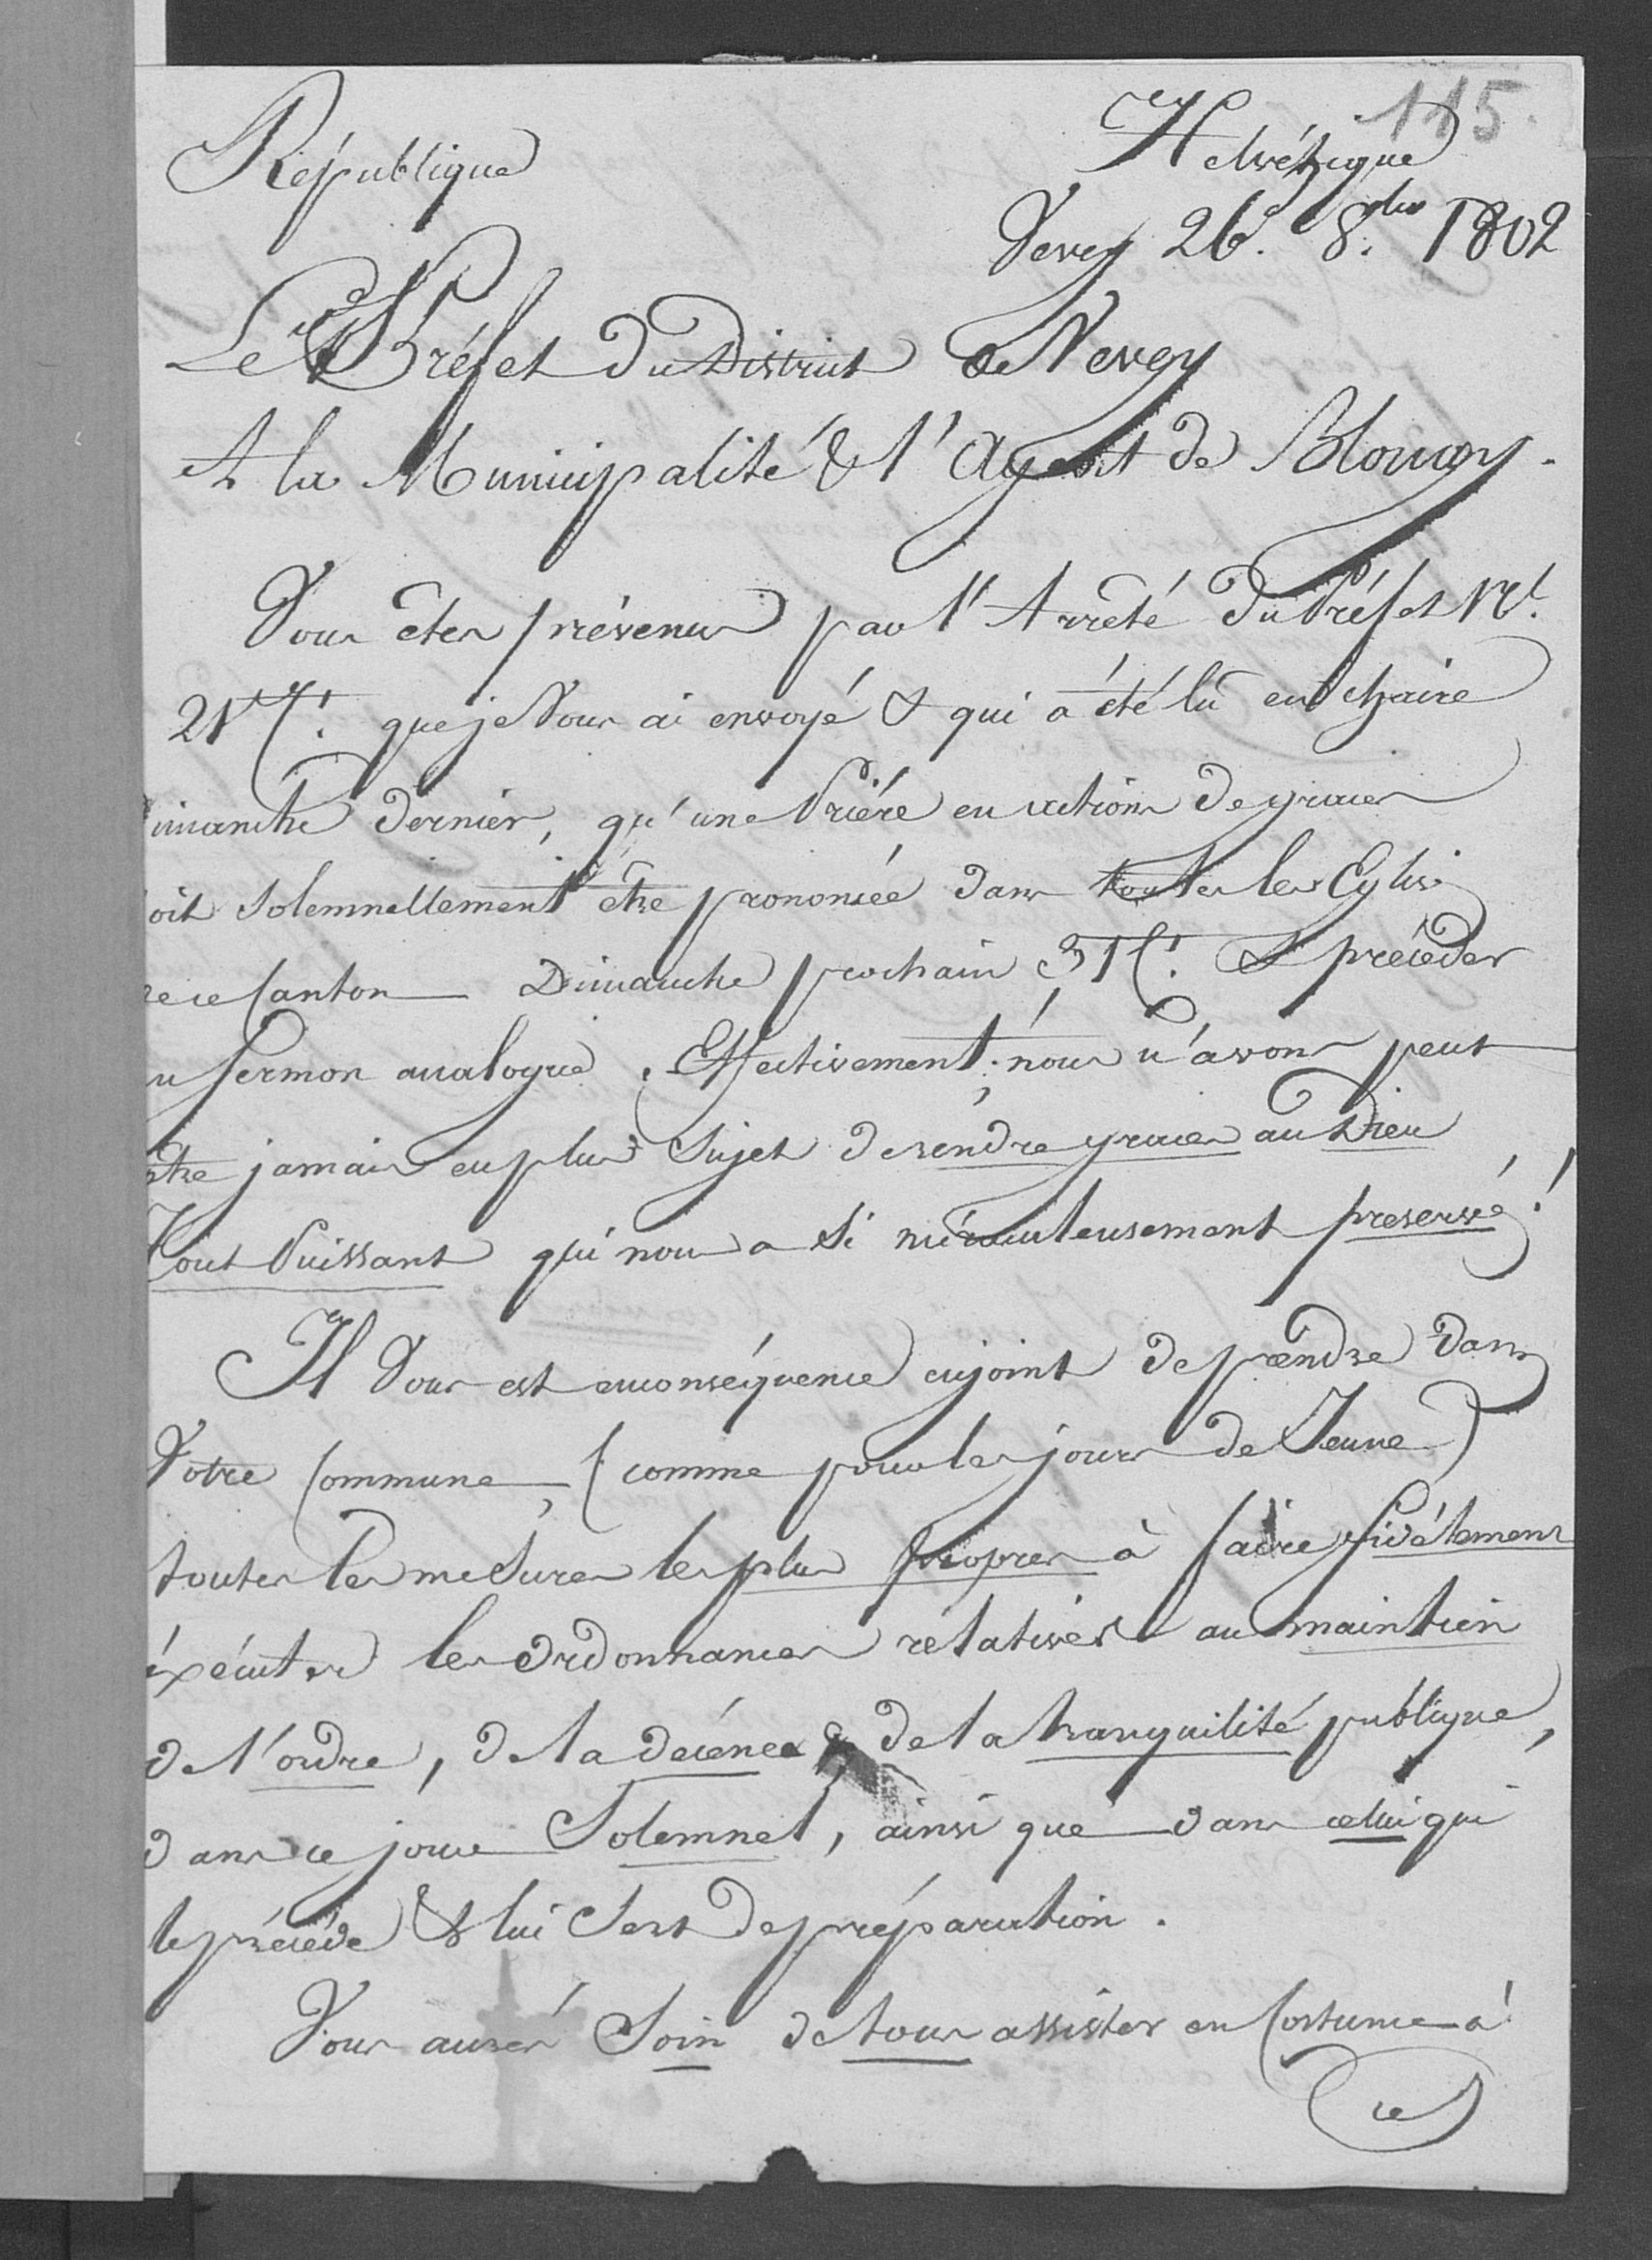 115.
République Helvétique
Vevey 26.e 8.bre 1802
Le Préfet du District de Vevey
A la Municipalité & l'Agent de Blonay.
Vous êtes prévenus par l'Arrêté du Préfet Nl.
21 Ct. que je Vous ai envoyé & qui a été lû en chaire
imanche dernier, qu'une Prière en actions de graces
oit Solemnellement être prononcée dans toutes les Eglis:
de ce Canton Dimanche prochain 31 Ct. & précéder
un Sermon analogue. Effectivement; nous n'avons peut
etre jamais eu plus Sujet de rendre graces au Dieu
Tout Puissant qui nous a Si miraculeusement preservé!
Il Vous est enconséquence enjoint de prendre dans
Votre Commune, (comme pour les jours de Jeune)
toutes les mesures les plus propres à faire fidélement
éxécuter les Ordonnances rélatives au maintien
de l'ordre, de la décence & de la tranquilité publique,
dans ce jour Solemnel, ainsi que dans celui qui
le précéde & lui Sert de préparation.
Vous aurés Soin de tous assister en Costume à
ce